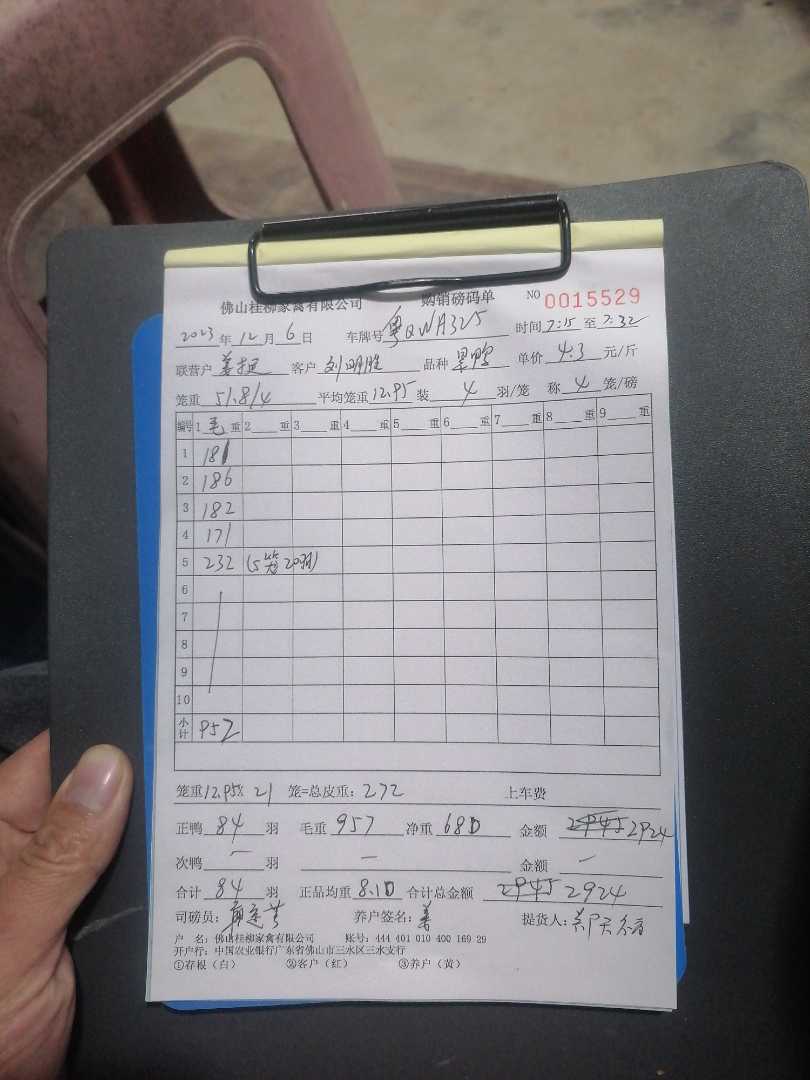 佛山桂柳家禽有限公司 购销磅码单 NO 0015529
2023年12月6日 车牌号 粤QWA325 时间7:15至7:32
联营户 客户 刘明胜 品种 单价 4.3 元/斤
笼重 51.8/4 平均笼重12.95 装 4 羽/笼 称 4 笼/磅
编号 1 毛 重 2 重 3 重 4 重 5 重 6 重 7 重 8 重 9 重
1 181
2 186
3 182
4 171
5 232 (5笼20羽)
6
7
8
9
10
小计 952
笼重12.95X21 笼=总皮重:272 上车费
正鸭 84 羽 毛重 957 净重 680 金额 2945 2924
次鸭 — 羽 — 金额 —
合计 84 羽 正品均重 8.10 合计总金额 2945 2924
司磅员: 养户签名:姜 提货人:
户 名:佛山桂柳家禽有限公司 账号:444 401 010 400 169 29
开户行:中国农业银行广东省佛山市三水区三水支行
①存根(白) ②客户(红) ③养户(黄)